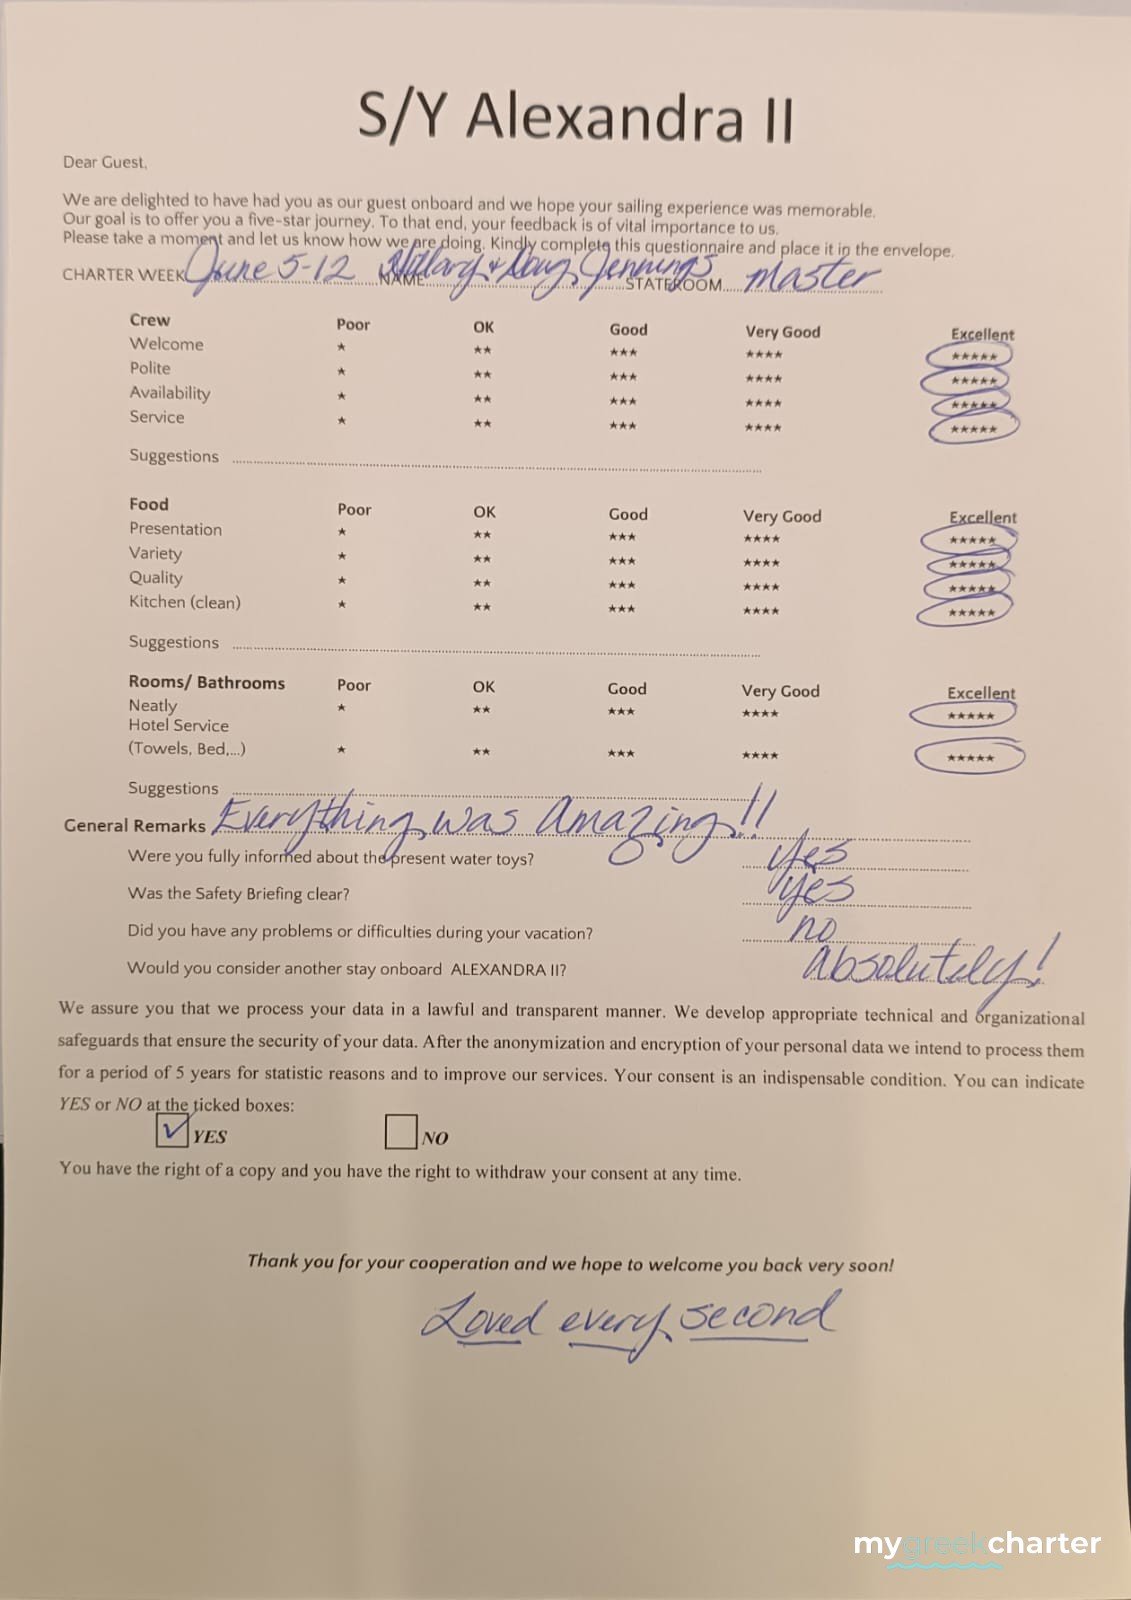 S/Y Alexandra II
Dear Guest,
We are delighted to have had you as our guest onboard and we hope your sailing experience was memorable.
Our goal is to offer you a five-star journey. To that end, your feedback is of vital importance to us.
Please take a moment and let us know how we are doing. Kindly complete this questionnaire and place it in the envelope.
CHARTER WEEK June 5-12 NAME Hillary & Doug Jennings STATEROOM master
Crew Poor OK Good Very Good Excellent
Welcome ★ ★★ ★★★ ★★★★ ★★★★★
Polite ★ ★★ ★★★ ★★★★ ★★★★★
Availability ★ ★★ ★★★ ★★★★ ★★★★★
Service ★ ★★ ★★★ ★★★★ ★★★★★
Suggestions
Food Poor OK Good Very Good Excellent
Presentation ★ ★★ ★★★ ★★★★ ★★★★★
Variety ★ ★★ ★★★ ★★★★ ★★★★★
Quality ★ ★★ ★★★ ★★★★ ★★★★★
Kitchen (clean) ★ ★★ ★★★ ★★★★ ★★★★★
Suggestions
Rooms/ Bathrooms Poor OK Good Very Good Excellent
Neatly ★ ★★ ★★★ ★★★★ ★★★★★
Hotel Service
(Towels, Bed,...) ★ ★★ ★★★ ★★★★ ★★★★★
Suggestions
General Remarks Everything was Amazing!!
Were you fully informed about the present water toys? yes
Was the Safety Briefing clear? yes
Did you have any problems or difficulties during your vacation? no
Would you consider another stay onboard ALEXANDRA II? absolutely!
We assure you that we process your data in a lawful and transparent manner. We develop appropriate technical and organizational
safeguards that ensure the security of your data. After the anonymization and encryption of your personal data we intend to process them
for a period of 5 years for statistic reasons and to improve our services. Your consent is an indispensable condition. You can indicate
YES or NO at the ticked boxes:
YES NO
You have the right of a copy and you have the right to withdraw your consent at any time.
Thank you for your cooperation and we hope to welcome you back very soon!
Loved every second
mygreekcharter